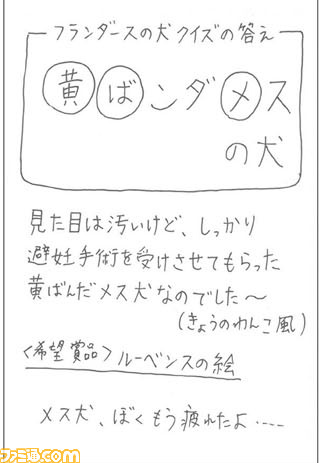 フランダースの犬クイズの答え
黄ばンダメス
の犬
見た目は汚いけど、しっかり
避妊手術を受けさせてもらった
黄ばんだメス犬なのでした〜
(きょうのわんこ風)
<希望賞品>ルーベンスの絵
メス犬、ぼくもう疲れたよ……
ファミ通.com